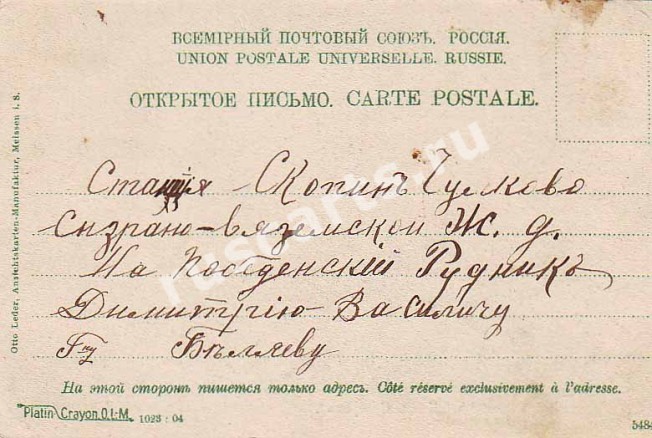 ВСЕМІРНЫЙ ПОЧТОВЫЙ СОЮЗЪ. РОССІЯ.
UNION POSTALE UNIVERSELLE. RUSSIE.
ОТКРЫТОЕ ПИСЬМО. CARTE POSTALE.
Станція Скопинъ
Сызрано-Вяземской Ж. д.
На Побѣденскій Рудникъ
Димитрію Василичу
Г-ну Бѣляеву
На этой сторонѣ пишется только адресъ. Côté réservé exclusivement à l'adresse.
Platin Crayon O.L.M. 1023 : 04
Otto Leder, Ansichtskarten-Manufaktur, Meissen i. S.
rasearts.ru